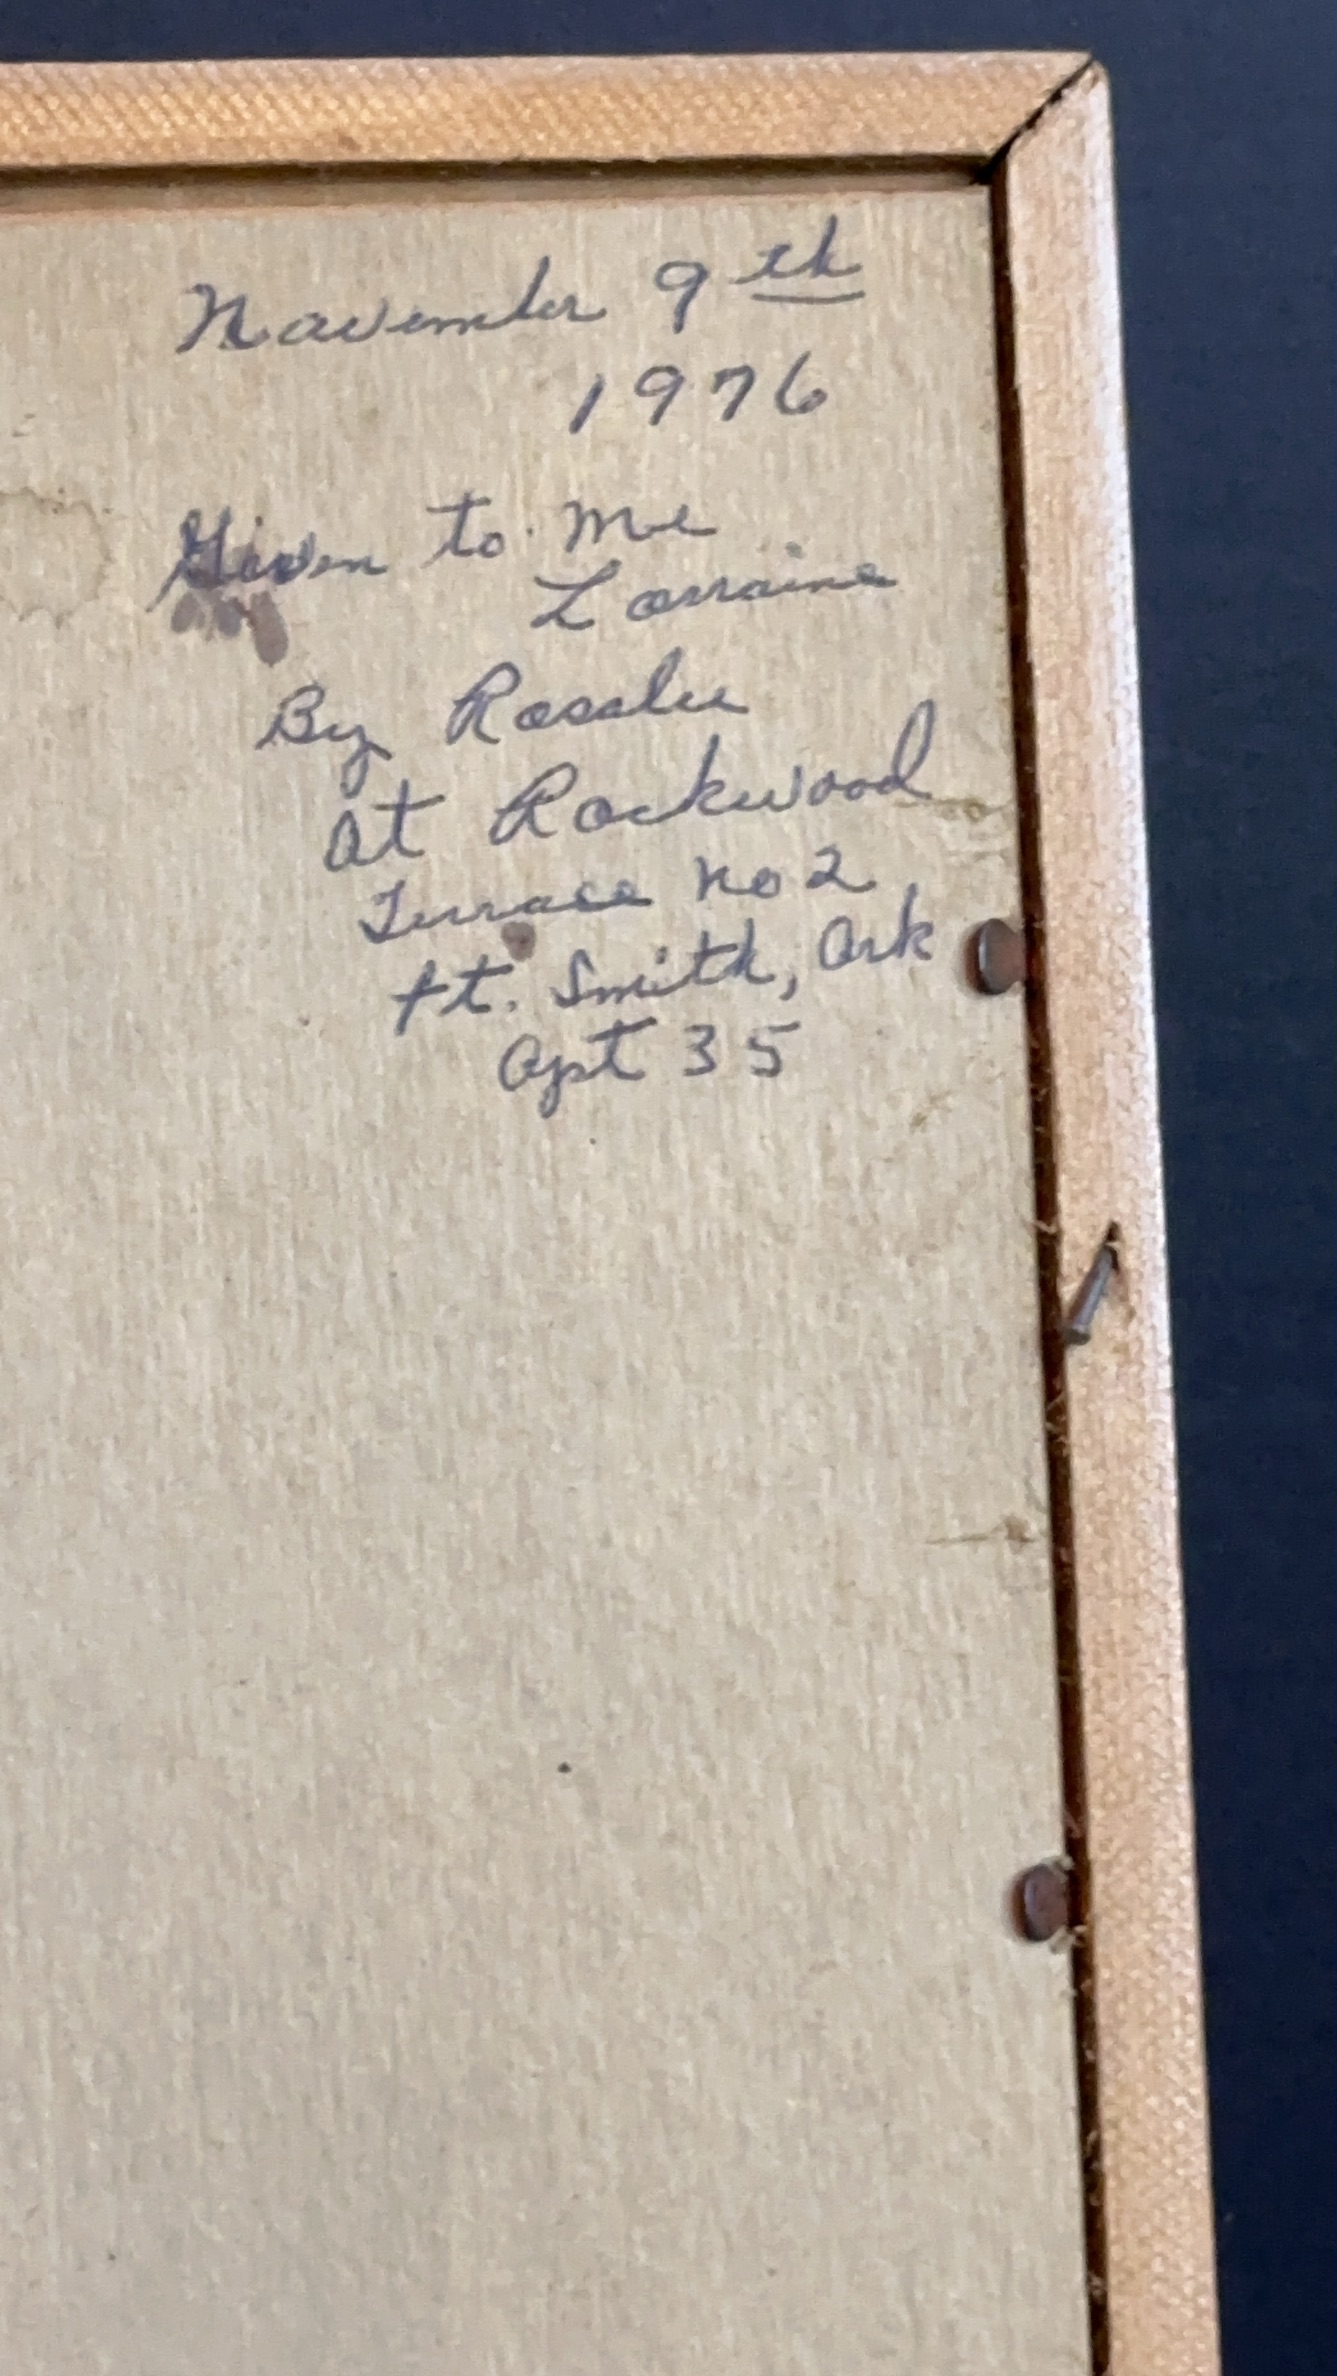 November 9th
1976
Given to me
Lorraine
By Rosalee
At Rockwood
Terrace no 2
Ft. Smith, Ark
Apt 35